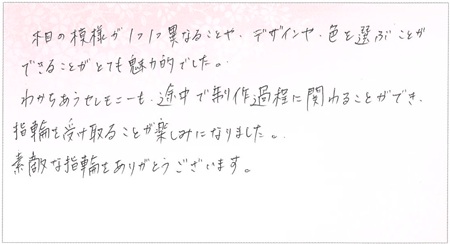 木目の模様が1つ1つ異なることや、デザインや、色を選ぶことが
できることがとても魅力的でした。
わかちあうセレモニーも、途中で制作過程に関わることができ、
指輪を受け取ることが楽しみになりました。
素敵な指輪をありがとうございます。